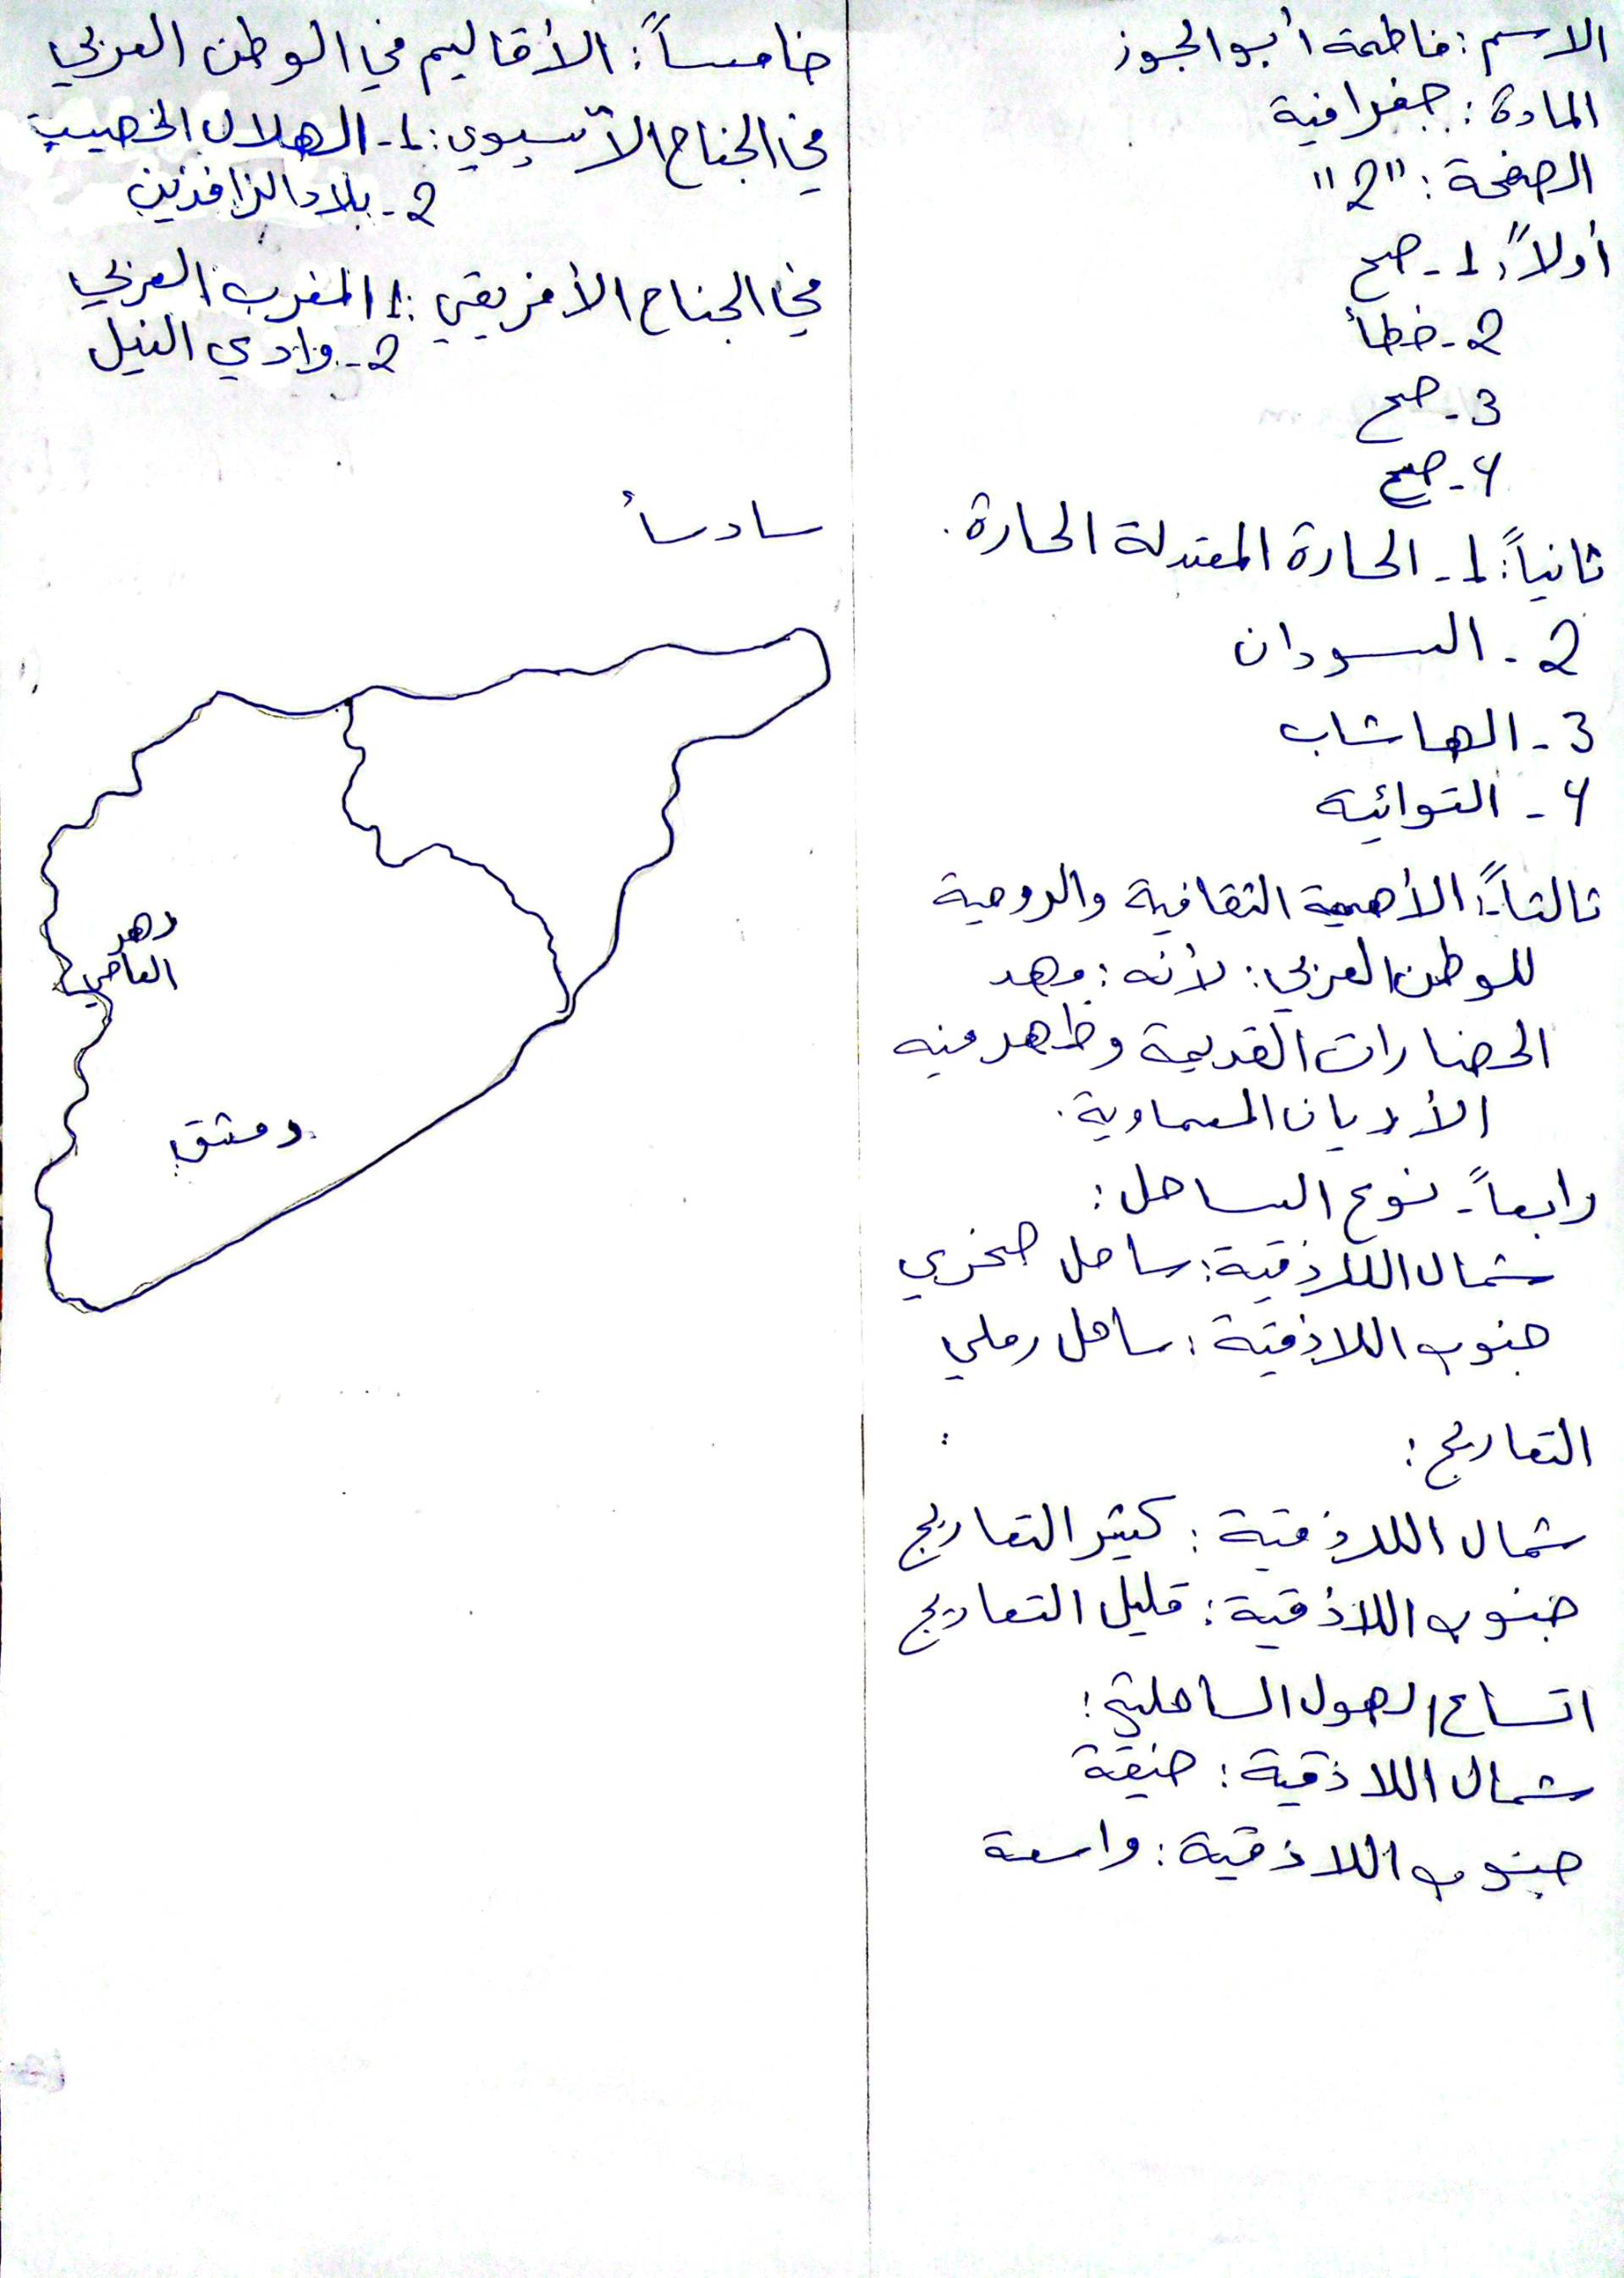 الاسم : فاطمة أبو الجوز
المادة : جغرافية
الصفحة : "2"
أولاً : 1 - صح
2 - خطأ
3 - صح
4 - صح
ثانياً : 1 - الحارة المعتدلة الحارة .
2 - السودان
3 - الهاشاب
4 - التوائية
ثالثاً : الأهمية الثقافية والروحية
للوطن العربي : لأنه : مهد
الحضارات القديمة وظهر منه
الأديان السماوية .
رابعاً - نوع الساحل :
شمال اللاذقية : ساحل صخري
جنوب اللاذقية : ساحل رملي
التعاريج :
شمال اللاذقية : كثير التعاريج
جنوب اللاذقية : قليل التعاريج
اتساع السهول الساحلية :
شمال اللاذقية : ضيقة
جنوب اللاذقية : واسعة
خامساً : الأقاليم في الوطن العربي
في الجناح الآسيوي : 1 - الهلال الخصيب
2 - بلاد الرافدين
في الجناح الأفريقي : 1 المغرب العربي
2 - وادي النيل
سادساً
نهر
العاصي
دمشق